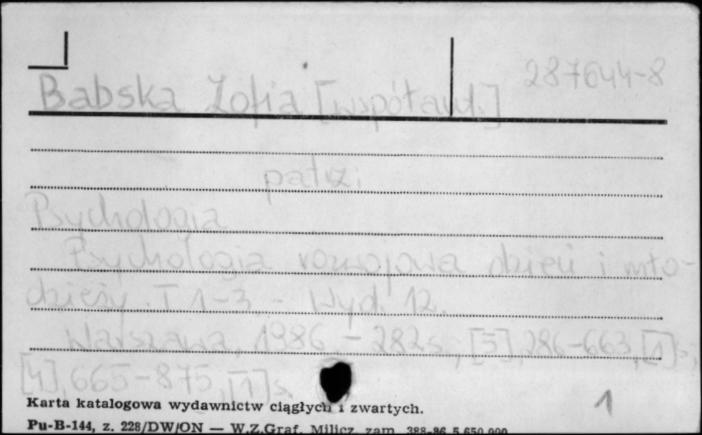 287644-8
Babska Zofia [współaut.]
patrz:
Psychologia
Psychologia rozwojowa dzieci i mło-
dzieży. T 1-3. - Wyd. 12.
Warszawa, 1986 - 282 s., [5], 286-663, [1] s.,
[4], 665-875, [1] s.
1
Karta katalogowa wydawnictw ciągłych i zwartych.
Pu-B-144, z. 228/DW/ON — W.Z.Graf. Milicz zam. 388-86 5.650.000